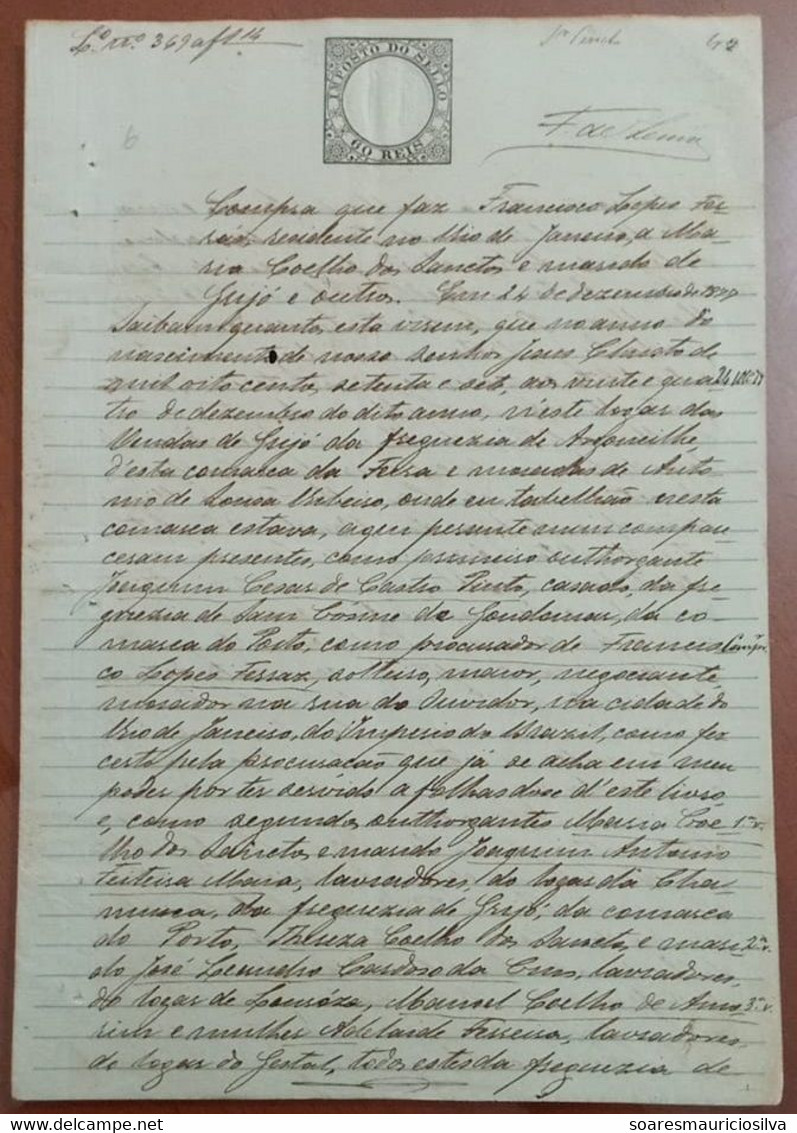 L.º nº 369 a fl 14
IMPOSTO DO SELLO
60 REIS
Compra que faz Francisco Lopes Fer-
raz, residente no Rio de Janeiro, a Ma-
ria Coelho dos Sanctos e marido de
Grijó e outros. Em 24 de dezembro de 1877
Saibam quantos esta virem, que no anno do
nascimento de nosso Senhor Jesus Christo de
mil oito centos setenta e sete, aos vinte e qua-
tro de dezembro do dito anno, n'este logar das
Vendas de Grijó da freguezia de Argoncilhe,
d'esta comarca da Feira e moradas de Anto-
nio de Sousa Ribeiro, onde eu tabellião n'esta
comarca estava, aqui perante mim compare-
ceram presentes, como primeiro outhorgante
Joaquim Cesar de Castro Pinto, casado, da fre-
guezia de Sam Cósme de Gondomar, da co-
marca do Porto, como procurador de Francis-
co Lopes Ferraz, solteiro, maior, negociante,
morador na rua do Ouvidor, na cidade do
Rio de Janeiro, do Imperio do Brazil, como fez
certo pela procuração que já se acha em meu
poder por ter servido a folhas doze d'este livro
e, como segundos outhorgantes Maria Coe- 1.os v.
lho dos Sanctos e marido Joaquim Antonio
Teixeira Maia, lavradores, do logar da Cha-
musca, da freguezia de Grijó, da comarca
do Porto, Thereza Coelho dos Sanctos e mari- 2.os v.
do José Leandro Cardoso da Cruz, lavradores,
do logar de Louróza, Manoel Coelho de Amo- 3.os v.
rim e mulher Adelaide Ferreira, lavradores,
do logar do Gestal, todos estes da freguezia de
soaresmauriciosilva
delcampe.net